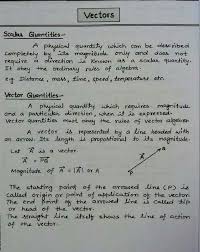 Vectors
Scalar Quantities:-
A physical quantity which can be described
completely by its magnitude only and does not
require a direction is known as a scalar quantity.
It obey the ordinary rules of algebra.
e.g. Distance, mass, time, speed, temperature etc.
Vector Quantities:-
A physical quantity which requires magnitude
and a particular direction when it is expressed.
Vector quantities must obey the rules of vector algebra.
A vector is represented by a line headed with
an arrow. Its length is proportional to its magnitude.
Let A⃗ is a vector.
A⃗ = PQ⃗
Magnitude of A⃗ = |A⃗| or A
A⃗
P
The starting point of the arrowed line (P) is
called origin or point of application of the vector.
The end point of the arrowed line is called tip
or head of the vector.
The straight line itself shows the line of action
of the vector.